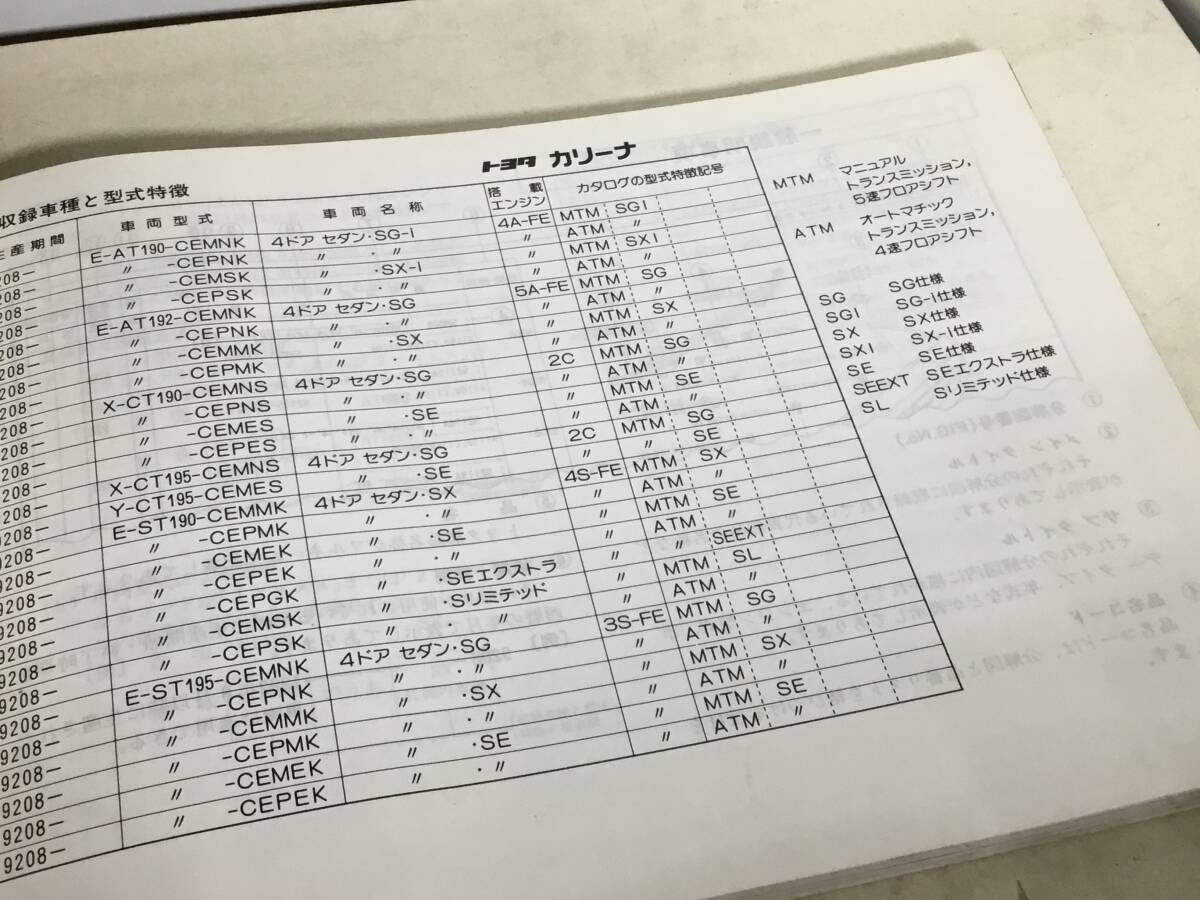 トヨタ カリーナ
収録車種と型式特徴
生産期間 車両型式 車両名称 搭載エンジン カタログの型式特徴記号
208− E-AT190-CEMNK 4ドア セダン・SG-I 4A-FE MTM SGI
208− 〃 -CEPNK 〃 ・ 〃 〃 ATM 〃
208− 〃 -CEMSK 〃 ・SX-I 〃 MTM SXI
208− 〃 -CEPSK 〃 ・ 〃 〃 ATM 〃
208− E-AT192-CEMNK 4ドア セダン・SG 5A-FE MTM SG
208− 〃 -CEPNK 〃 ・ 〃 〃 ATM 〃
208− 〃 -CEMMK 〃 ・SX 〃 MTM SX
208− 〃 -CEPMK 〃 ・ 〃 〃 ATM 〃
208− X-CT190-CEMNS 4ドア セダン・SG 2C MTM SG
208− 〃 -CEPNS 〃 ・ 〃 〃 ATM 〃
208− 〃 -CEMES 〃 ・SE 〃 MTM SE
208− 〃 -CEPES 〃 ・ 〃 〃 ATM 〃
9208− X-CT195-CEMNS 4ドア セダン・SG 2C MTM SG
9208− Y-CT195-CEMES 〃 ・SE 〃 〃 SE
9208− E-ST190-CEMMK 4ドア セダン・SX 4S-FE MTM SX
9208− 〃 -CEPMK 〃 ・ 〃 〃 ATM 〃
9208− 〃 -CEMEK 〃 ・SE 〃 MTM SE
9208− 〃 -CEPEK 〃 ・ 〃 〃 ATM 〃
9208− 〃 -CEPGK 〃 ・SEエクストラ 〃 〃 SEEXT
9208− 〃 -CEMSK 〃 ・Sリミテッド 〃 MTM SL
9208− 〃 -CEPSK 〃 ・ 〃 〃 ATM 〃
9208− E-ST195-CEMNK 4ドア セダン・SG 3S-FE MTM SG
9208− 〃 -CEPNK 〃 ・ 〃 〃 ATM 〃
9208− 〃 -CEMMK 〃 ・SX 〃 MTM SX
9208− 〃 -CEPMK 〃 ・ 〃 〃 ATM 〃
9208− 〃 -CEMEK 〃 ・SE 〃 MTM SE
9208− 〃 -CEPEK 〃 ・ 〃 〃 ATM 〃
MTM マニュアル
トランスミッション,
5速フロアシフト
ATM オートマチック
トランスミッション,
4速フロアシフト
SG SG仕様
SGI SG-I仕様
SX SX仕様
SXI SX-I仕様
SE SE仕様
SEEXT SEエクストラ仕様
SL Sリミテッド仕様